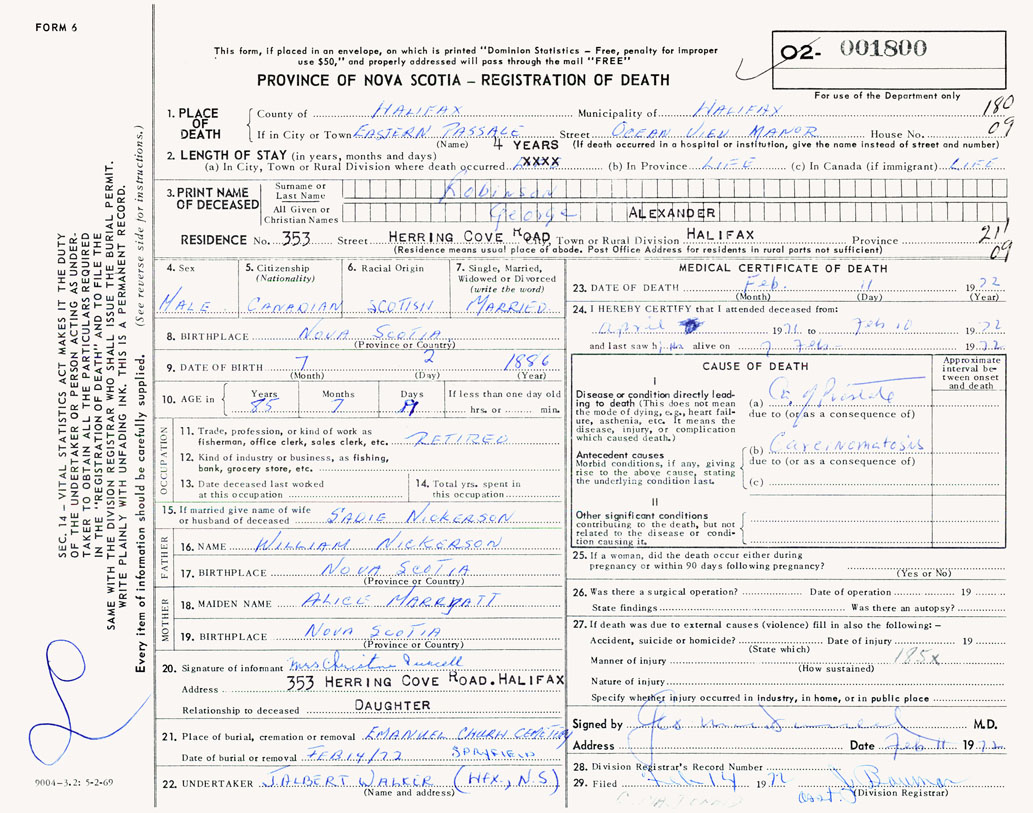 FORM 6
This form, if placed in an envelope, on which is printed "Dominion Statistics – Free, penalty for improper
use $50," and properly addressed will pass through the mail "FREE"
O2- 001800
For use of the Department only
PROVINCE OF NOVA SCOTIA – REGISTRATION OF DEATH
180
09
1. PLACE OF DEATH
County of HALIFAX Municipality of HALIFAX
If in City or Town EASTERN PASSAGE Street OCEAN VIEW MANOR House No.
(Name) (If death occurred in a hospital or institution, give the name instead of street and number)
2. LENGTH OF STAY (in years, months and days) 4 YEARS
(a) In City, Town or Rural Division where death occurred XXXX (b) In Province LIFE (c) In Canada (if immigrant) LIFE
3. PRINT NAME OF DECEASED
Surname or Last Name Robinson
All Given or Christian Names George ALEXANDER
RESIDENCE No. 353 Street HERRING COVE ROAD City, Town or Rural Division HALIFAX Province
(Residence means usual place of abode. Post Office Address for residents in rural parts not sufficient)
211
09
4. Sex
MALE
5. Citizenship (Nationality)
CANADIAN
6. Racial Origin
SCOTISH
7. Single, Married, Widowed or Divorced (write the word)
MARRIED
8. BIRTHPLACE NOVA SCOTIA
(Province or Country)
9. DATE OF BIRTH 7 2 1886
(Month) (Day) (Year)
10. AGE in Years 85 Months 7 Days 9 If less than one day old
hrs. or min.
OCCUPATION
11. Trade, profession, or kind of work as
fisherman, office clerk, sales clerk, etc. RETIRED
12. Kind of industry or business, as fishing,
bank, grocery store, etc.
13. Date deceased last worked
at this occupation
14. Total yrs. spent in
this occupation
15. If married give name of wife
or husband of deceased SADIE NICKERSON
FATHER
16. NAME WILLIAM NICKERSON
17. BIRTHPLACE NOVA SCOTIA
(Province or Country)
MOTHER
18. MAIDEN NAME ALICE MARRYATT
19. BIRTHPLACE NOVA SCOTIA
(Province or Country)
20. Signature of informant Mrs Christine
Address 353 HERRING COVE ROAD. HALIFAX
Relationship to deceased DAUGHTER
21. Place of burial, cremation or removal EMANUEL CHURCH CEMETARY
Date of burial or removal FEB 14/72 SPRYFIELD
22. UNDERTAKER J. ALBERT WALKER (HFX., N.S)
(Name and address)
MEDICAL CERTIFICATE OF DEATH
23. DATE OF DEATH Feb. 11 1972
(Month) (Day) (Year)
24. I HEREBY CERTIFY that I attended deceased from:
April 1971 to Feb 10 1972
and last saw him alive on 7 Feb 1972
CAUSE OF DEATH
Approximate interval between onset and death
I
Disease or condition directly leading to death (This does not mean
the mode of dying, e.g., heart failure, asthenia, etc. It means the
disease, injury, or complication
which caused death.)
(a) Ca of Prostate
due to (or as a consequence of)
Antecedent causes
Morbid conditions, if any, giving
rise to the above cause, stating
the underlying condition last.
(b) Carcinomatosis
due to (or as a consequence of)
(c)
II
Other significant conditions
contributing to the death, but not
related to the disease or condition causing it.
25. If a woman, did the death occur either during
pregnancy or within 90 days following pregnancy?
(Yes or No)
26. Was there a surgical operation? Date of operation 19
State findings Was there an autopsy?
27. If death was due to external causes (violence) fill in also the following: –
Accident, suicide or homicide? Date of injury 19
(State which)
Manner of injury 185x
(How sustained)
Nature of injury
Specify whether injury occurred in industry, in home, or in public place
Signed by M.D.
Address Date Feb 11 1972
28. Division Registrar's Record Number
29. Filed Feb 14 1972
asst. (Division Registrar)
SEC. 14 – VITAL STATISTICS ACT MAKES IT THE DUTY
OF THE UNDERTAKER OR PERSON ACTING AS UNDERTAKER TO OBTAIN ALL THE PARTICULARS REQUIRED
IN THE "REGISTRATION OF DEATH" AND TO FILE THE
SAME WITH THE DIVISION REGISTRAR WHO SHALL ISSUE THE BURIAL PERMIT.
WRITE PLAINLY WITH UNFADING INK. THIS IS A PERMANENT RECORD.
Every item of information should be carefully supplied. (See reverse side for instructions.)
9004-3.2: 5-2-69